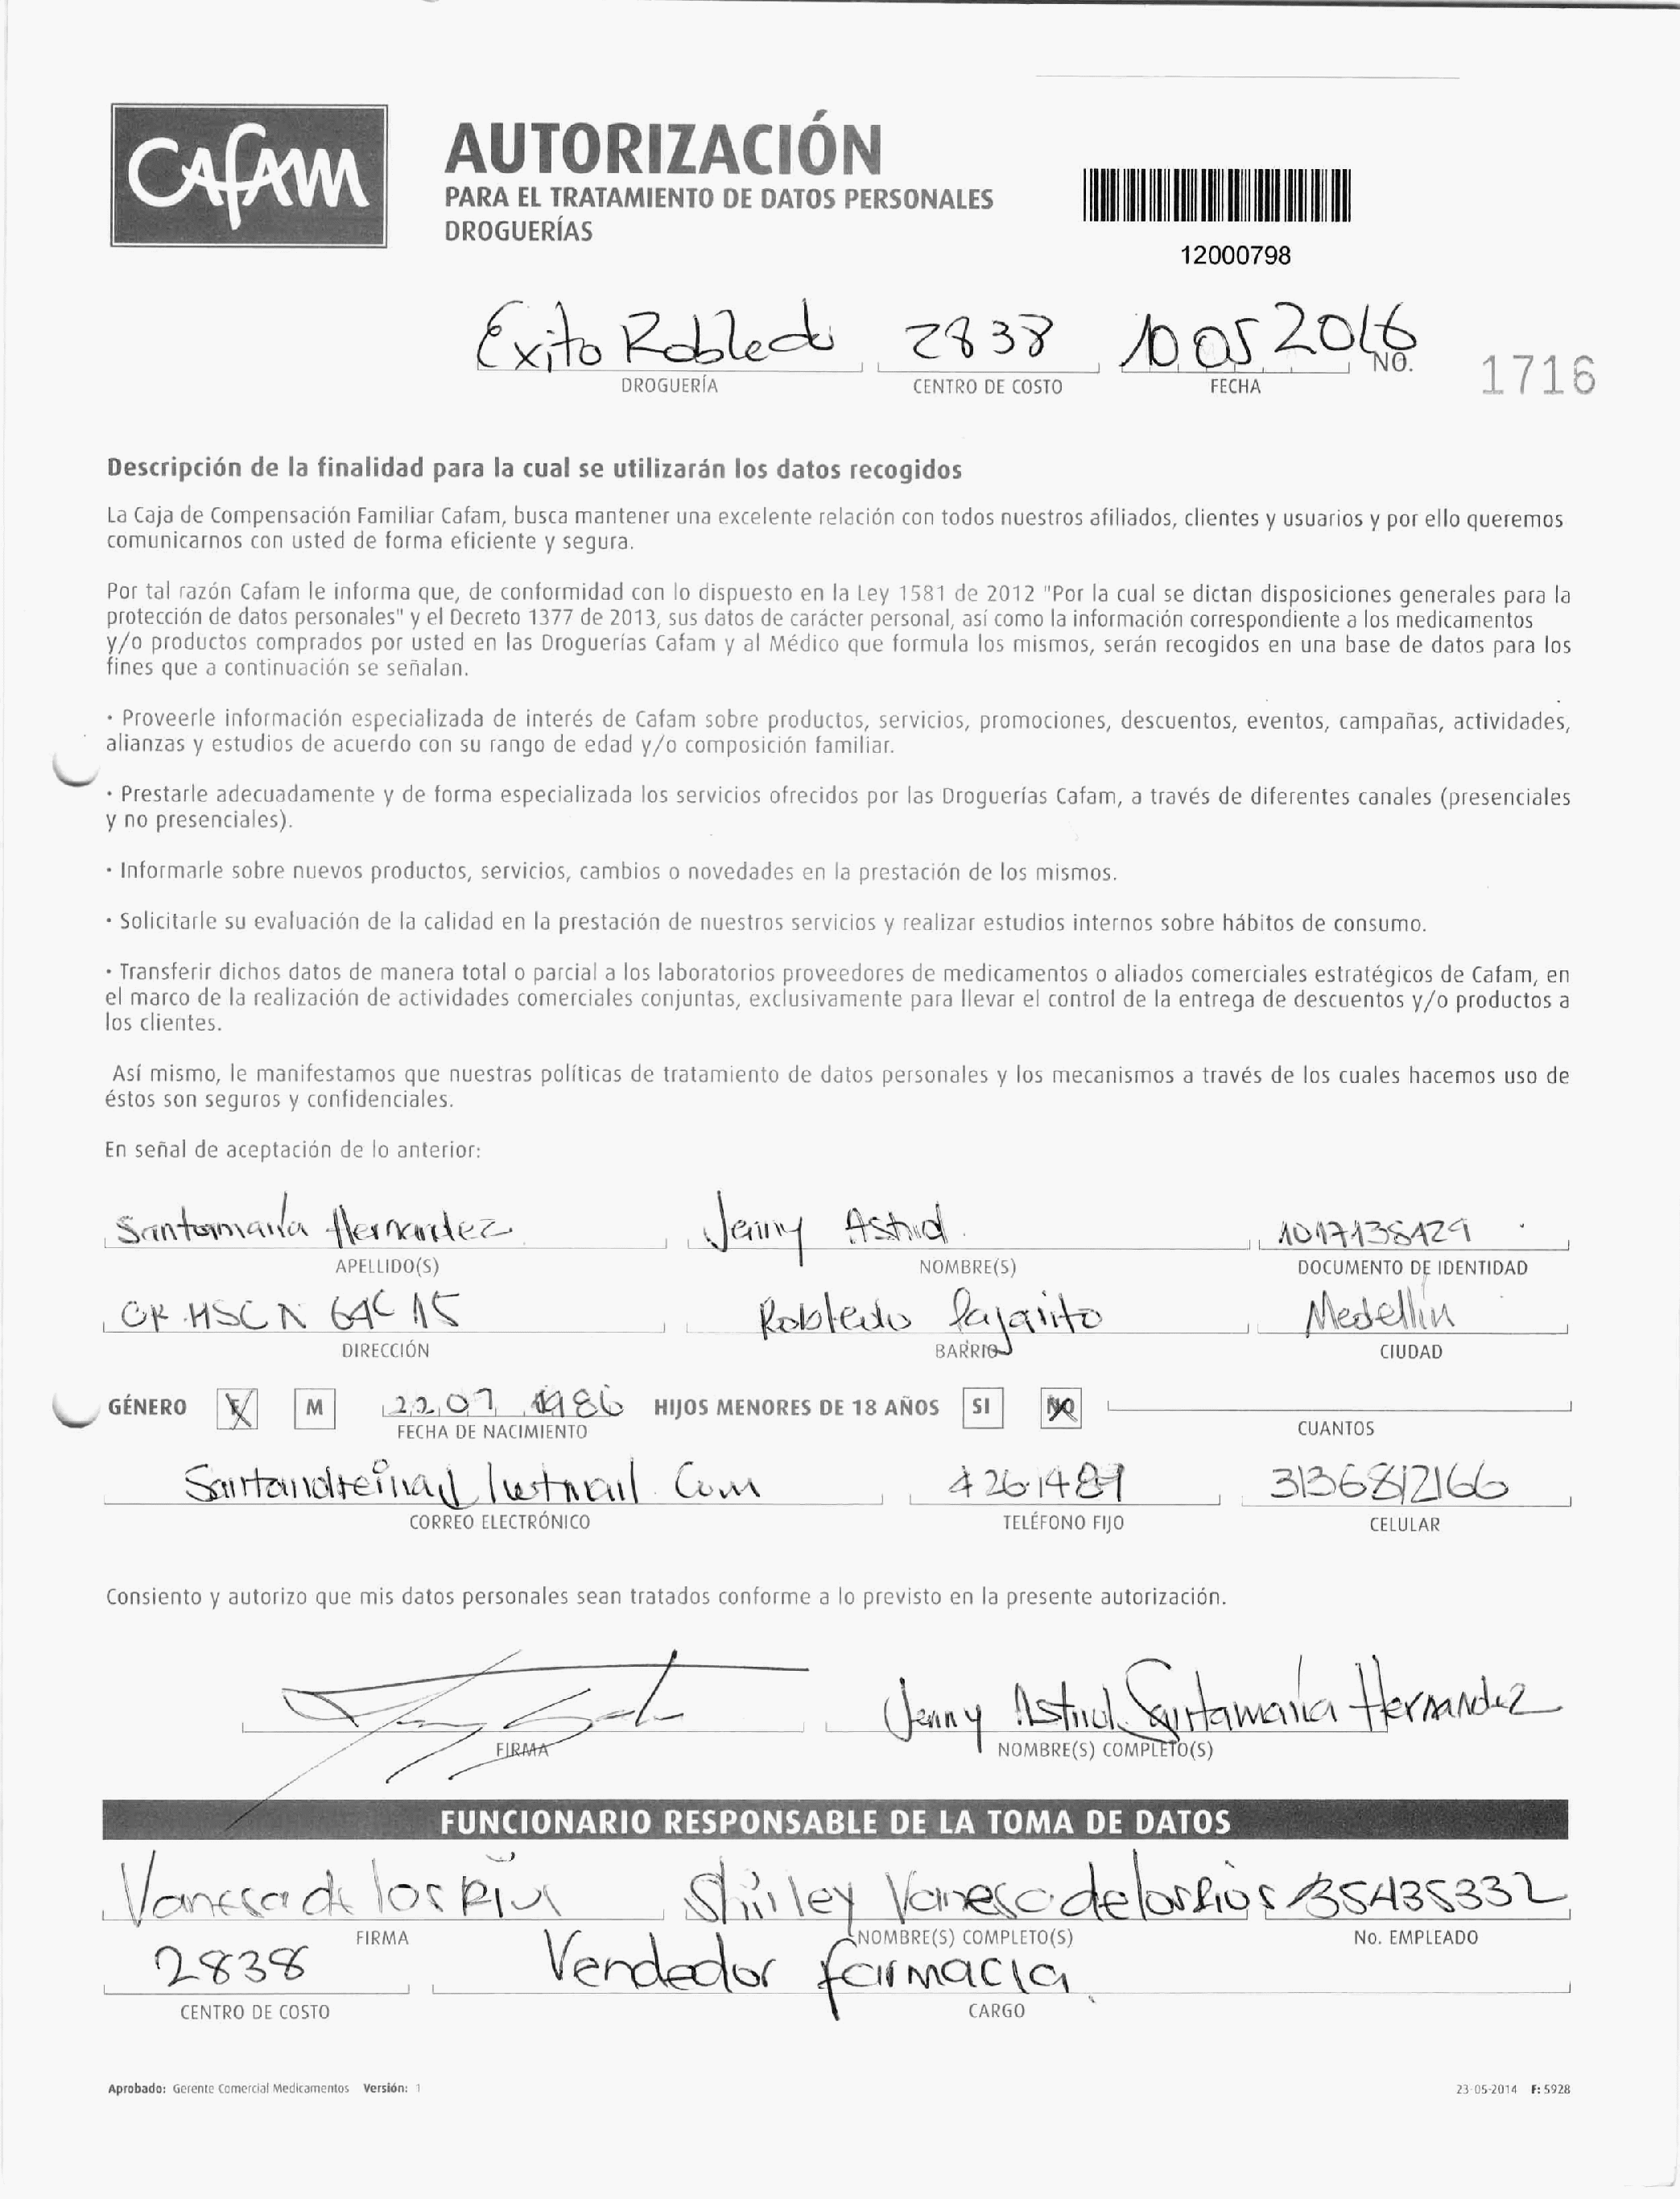 CAFAM
AUTORIZACIÓN
PARA EL TRATAMIENTO DE DATOS PERSONALES
DROGUERÍAS
12000798
Exito Robledo 2838 10 05 2016
NO. 1716
DROGUERÍA CENTRO DE COSTO FECHA
Descripción de la finalidad para la cual se utilizarán los datos recogidos
La Caja de Compensación Familiar Cafam, busca mantener una excelente relación con todos nuestros afiliados, clientes y usuarios y por ello queremos
comunicarnos con usted de forma eficiente y segura.
Por tal razón Cafam le informa que, de conformidad con lo dispuesto en la Ley 1581 de 2012 "Por la cual se dictan disposiciones generales para la
protección de datos personales" y el Decreto 1377 de 2013, sus datos de carácter personal, así como la información correspondiente a los medicamentos
y/o productos comprados por usted en las Droguerías Cafam y al Médico que formula los mismos, serán recogidos en una base de datos para los
fines que a continuación se señalan.
· Proveerle información especializada de interés de Cafam sobre productos, servicios, promociones, descuentos, eventos, campañas, actividades,
alianzas y estudios de acuerdo con su rango de edad y/o composición familiar.
· Prestarle adecuadamente y de forma especializada los servicios ofrecidos por las Droguerías Cafam, a través de diferentes canales (presenciales
y no presenciales).
· Informarle sobre nuevos productos, servicios, cambios o novedades en la prestación de los mismos.
· Solicitarle su evaluación de la calidad en la prestación de nuestros servicios y realizar estudios internos sobre hábitos de consumo.
· Transferir dichos datos de manera total o parcial a los laboratorios proveedores de medicamentos o aliados comerciales estratégicos de Cafam, en
el marco de la realización de actividades comerciales conjuntas, exclusivamente para llevar el control de la entrega de descuentos y/o productos a
los clientes.
Así mismo, le manifestamos que nuestras políticas de tratamiento de datos personales y los mecanismos a través de los cuales hacemos uso de
éstos son seguros y confidenciales.
En señal de aceptación de lo anterior:
Santamaría Hernandez Jenny Astrid 1017138429
APELLIDO(S) NOMBRE(S) DOCUMENTO DE IDENTIDAD
64C 15 Robledo Pajarito Medellín
DIRECCIÓN BARRIO CIUDAD
GÉNERO F M 22 07 1986 HIJOS MENORES DE 18 AÑOS SI NO
FECHA DE NACIMIENTO CUANTOS
Com 4261487 3136812166
CORREO ELECTRÓNICO TELÉFONO FIJO CELULAR
Consiento y autorizo que mis datos personales sean tratados conforme a lo previsto en la presente autorización.
Jenny Astrid Santamaría Hernandez
FIRMA NOMBRE(S) COMPLETO(S)
FUNCIONARIO RESPONSABLE DE LA TOMA DE DATOS
Vanesa de los Rios Shirley Vanesa de los Rios 35435332
FIRMA NOMBRE(S) COMPLETO(S) No. EMPLEADO
2838 Vendedor farmacia
CENTRO DE COSTO CARGO
Aprobado: Gerente Comercial Medicamentos Versión: 1 23-05-2014 F: 5928